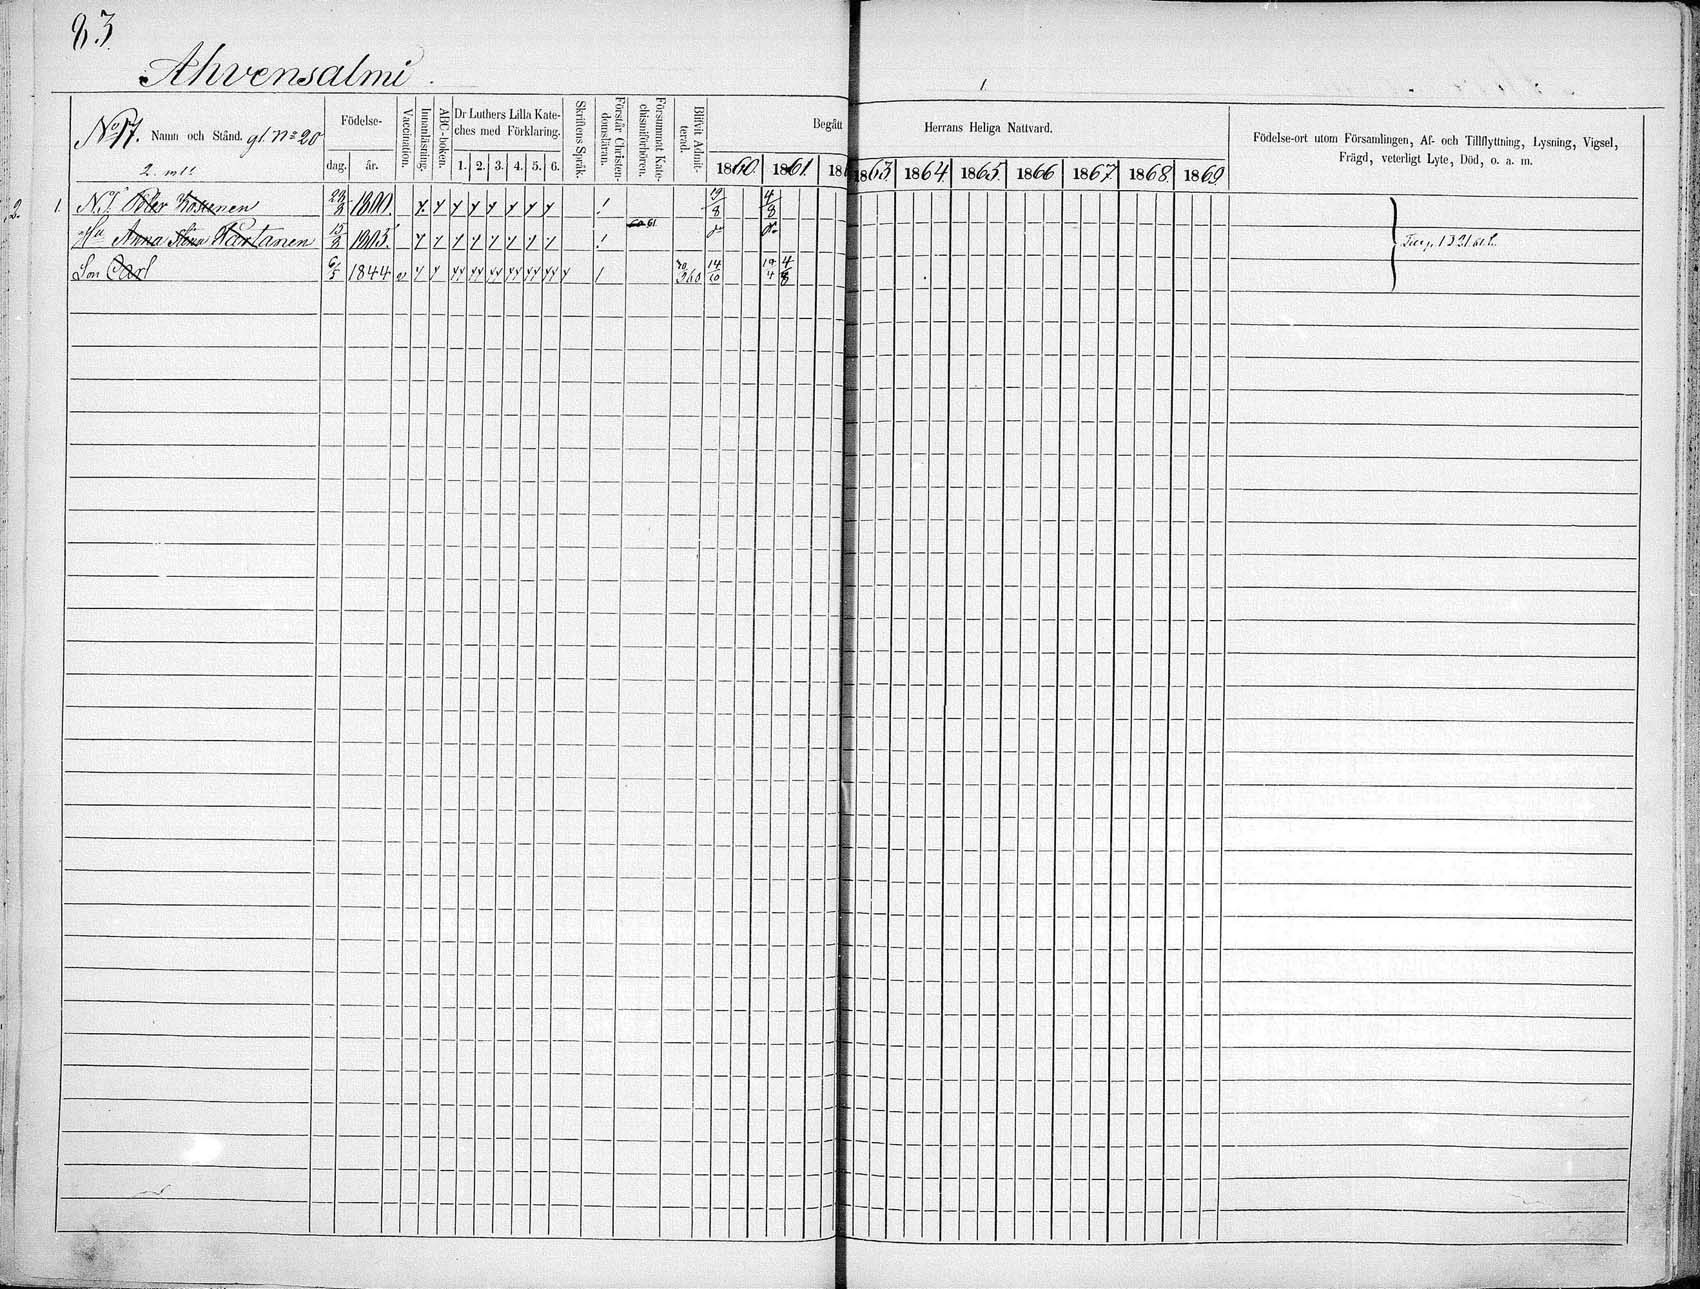 83
Ahvensalmi
No 17. Namn och Stånd. gl. No 20
Födelse-
dag. år.
Vaccination.
Innanläsning.
ABC-boken.
Dr Luthers Lilla Kate-
ches med Förklaring.
1. 2. 3. 4. 5. 6.
Skriftens Språk
Förstår Christen-
domsläran.
Försummat Kate-
chismiförhören.
Blifvit Admit-
terad.
Begått
Herrans Heliga Nattvard.
1860. 1861. 18
1863 1864 1865 1866 1867 1868 1869
Födelse-ort utom Församlingen, Af- och Tillflyttning, Lysning, Vigsel,
Frägd, veterligt Lyte, Död, o. a. m.
2. 1. 1800. 19/8 4/8
Hu Anna Wartanen 15/3 1803.
60 61
Son Carl 6/5 1844 v 14/10 4/8